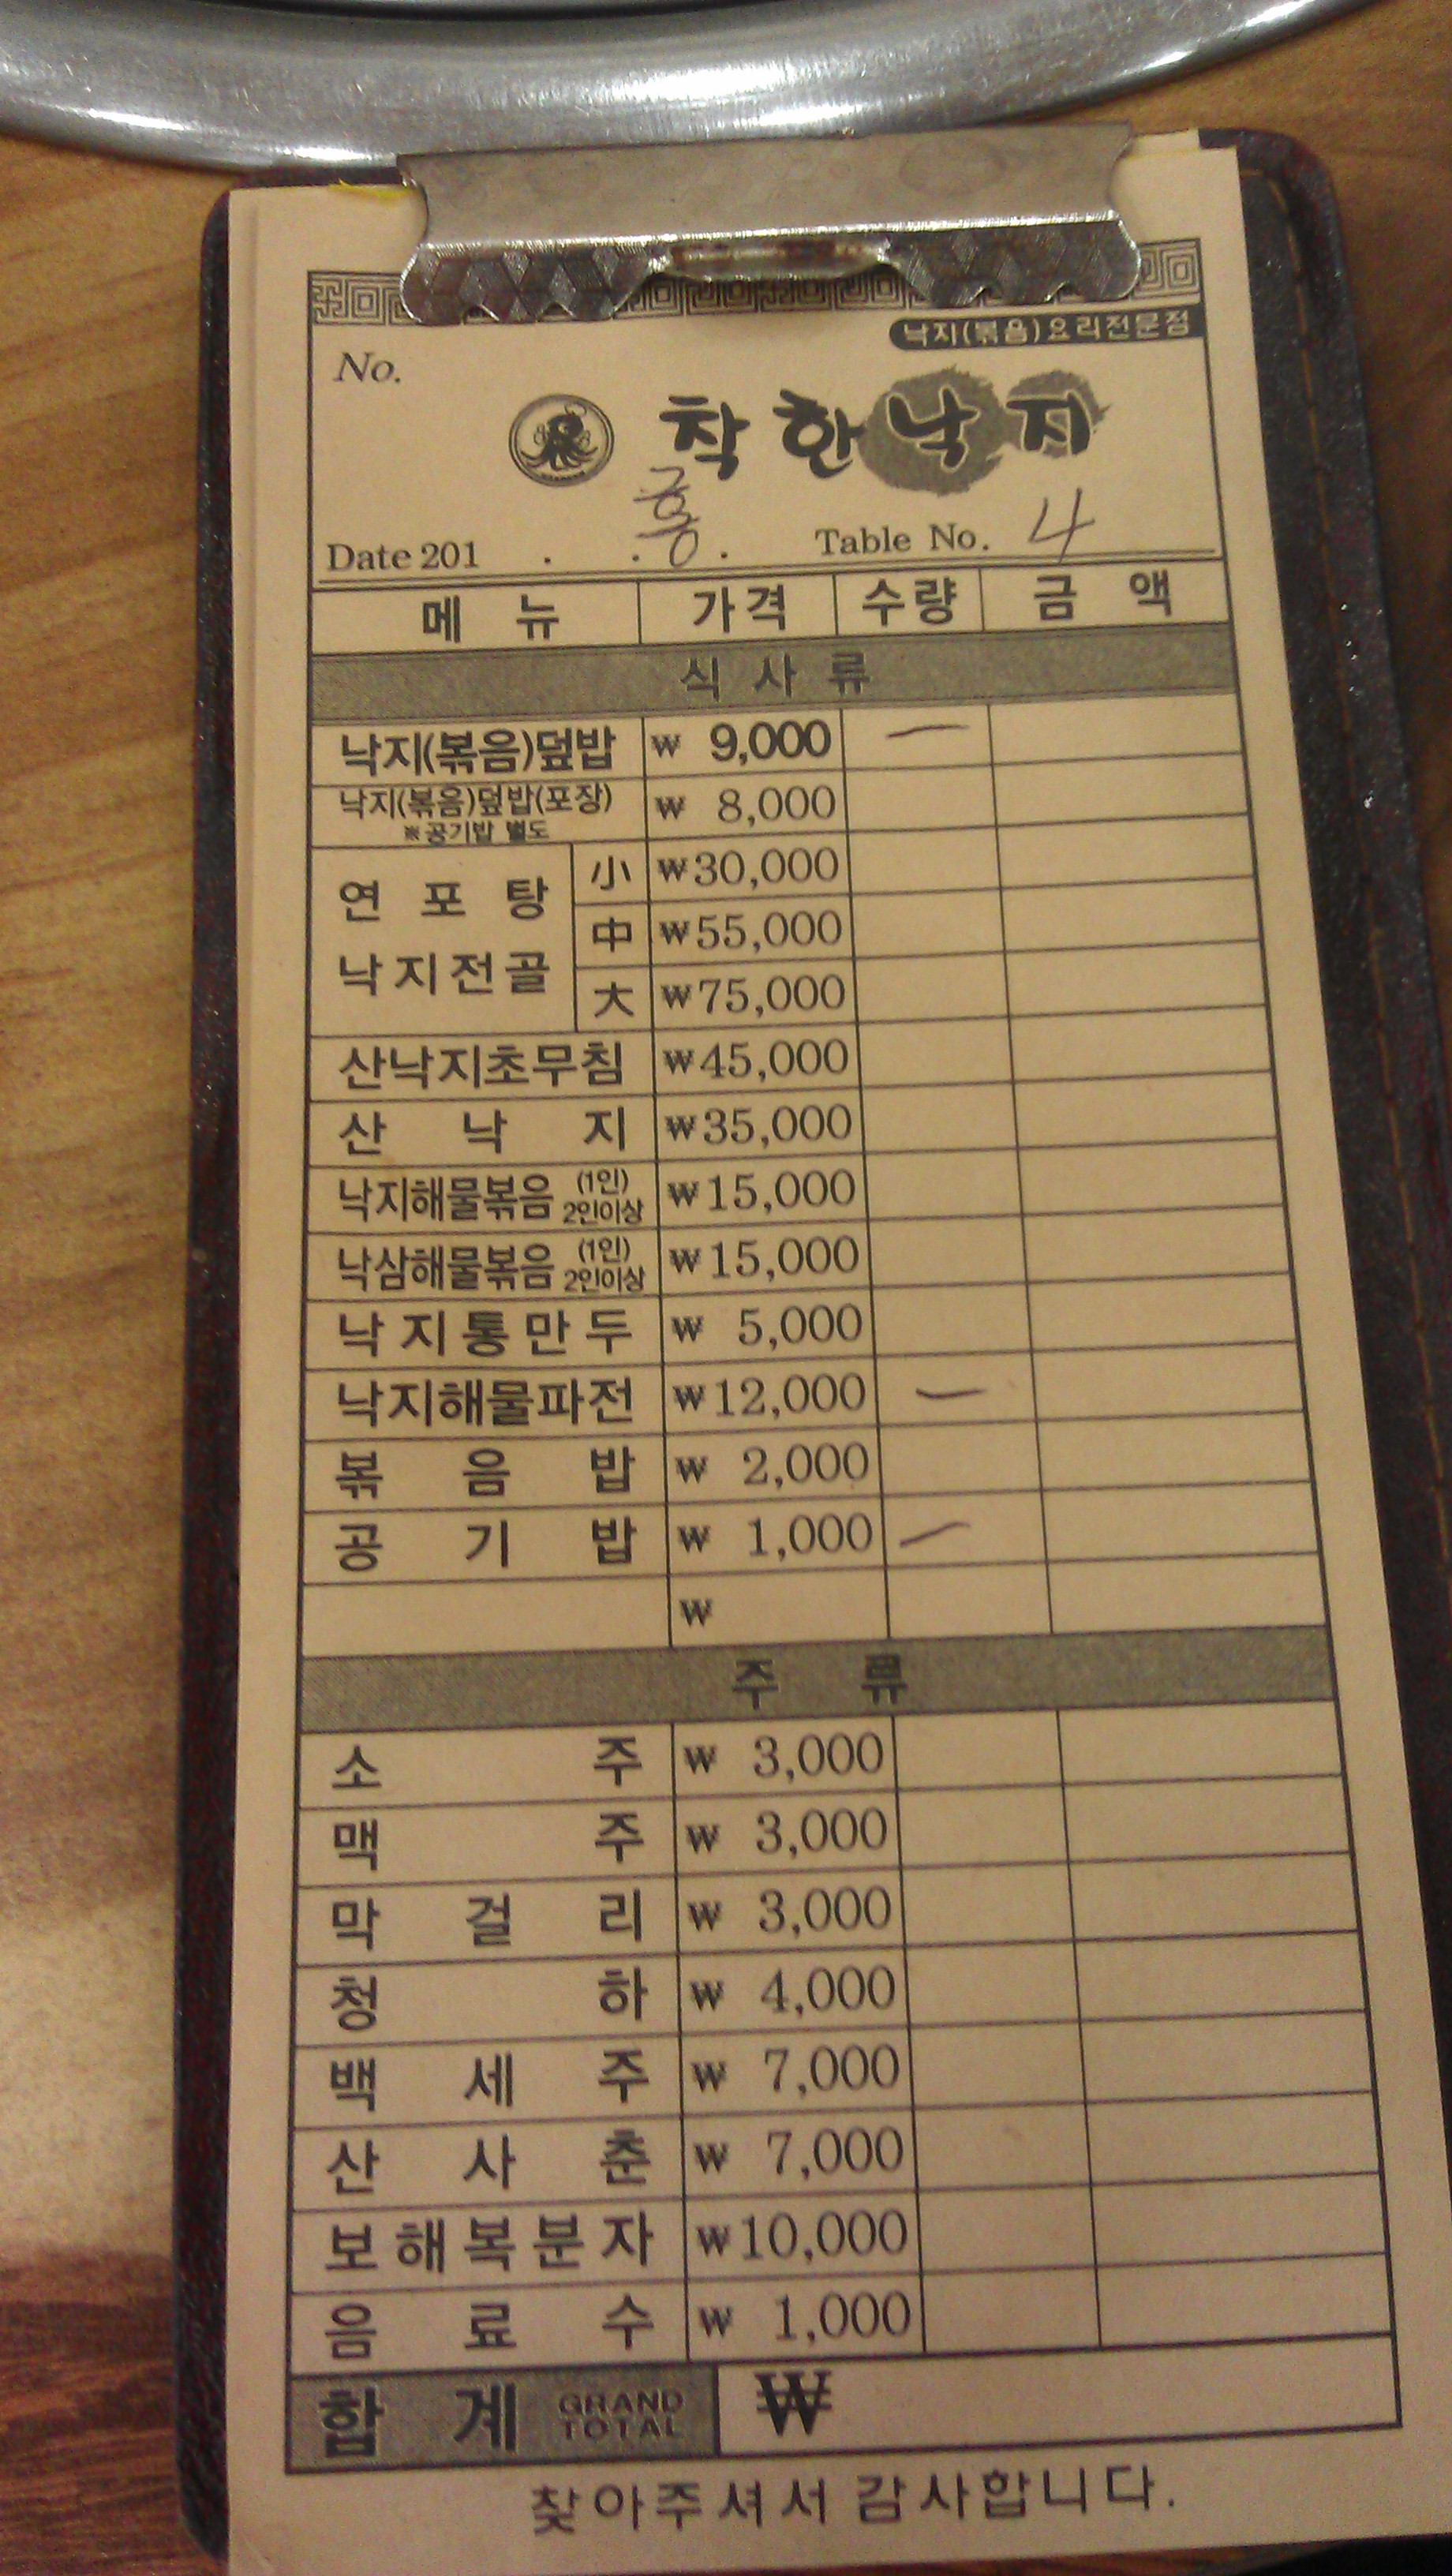 낙지(볶음)요리전문점
No.
착한낙지
홍
Date 201 . . . Table No. 4
메 뉴 가격 수량 금 액
식 사 류
낙지(볶음)덮밥 ₩ 9,000 一
낙지(볶음)덮밥(포장) ₩ 8,000
※공기밥 별도
연 포 탕
낙지전골
小 ₩30,000
中 ₩55,000
大 ₩75,000
산낙지초무침 ₩45,000
산 낙 지 ₩35,000
낙지해물볶음 (1인) 2인이상 ₩15,000
낙삼해물볶음 (1인) 2인이상 ₩15,000
낙지통만두 ₩ 5,000
낙지해물파전 ₩12,000 一
볶 음 밥 ₩ 2,000
공 기 밥 ₩ 1,000 一
₩
주 류
소 주 ₩ 3,000
맥 주 ₩ 3,000
막 걸 리 ₩ 3,000
청 하 ₩ 4,000
백 세 주 ₩ 7,000
산 사 춘 ₩ 7,000
보해복분자 ₩10,000
음 료 수 ₩ 1,000
합 계 GRAND TOTAL ₩
찾아주셔서 감사합니다.